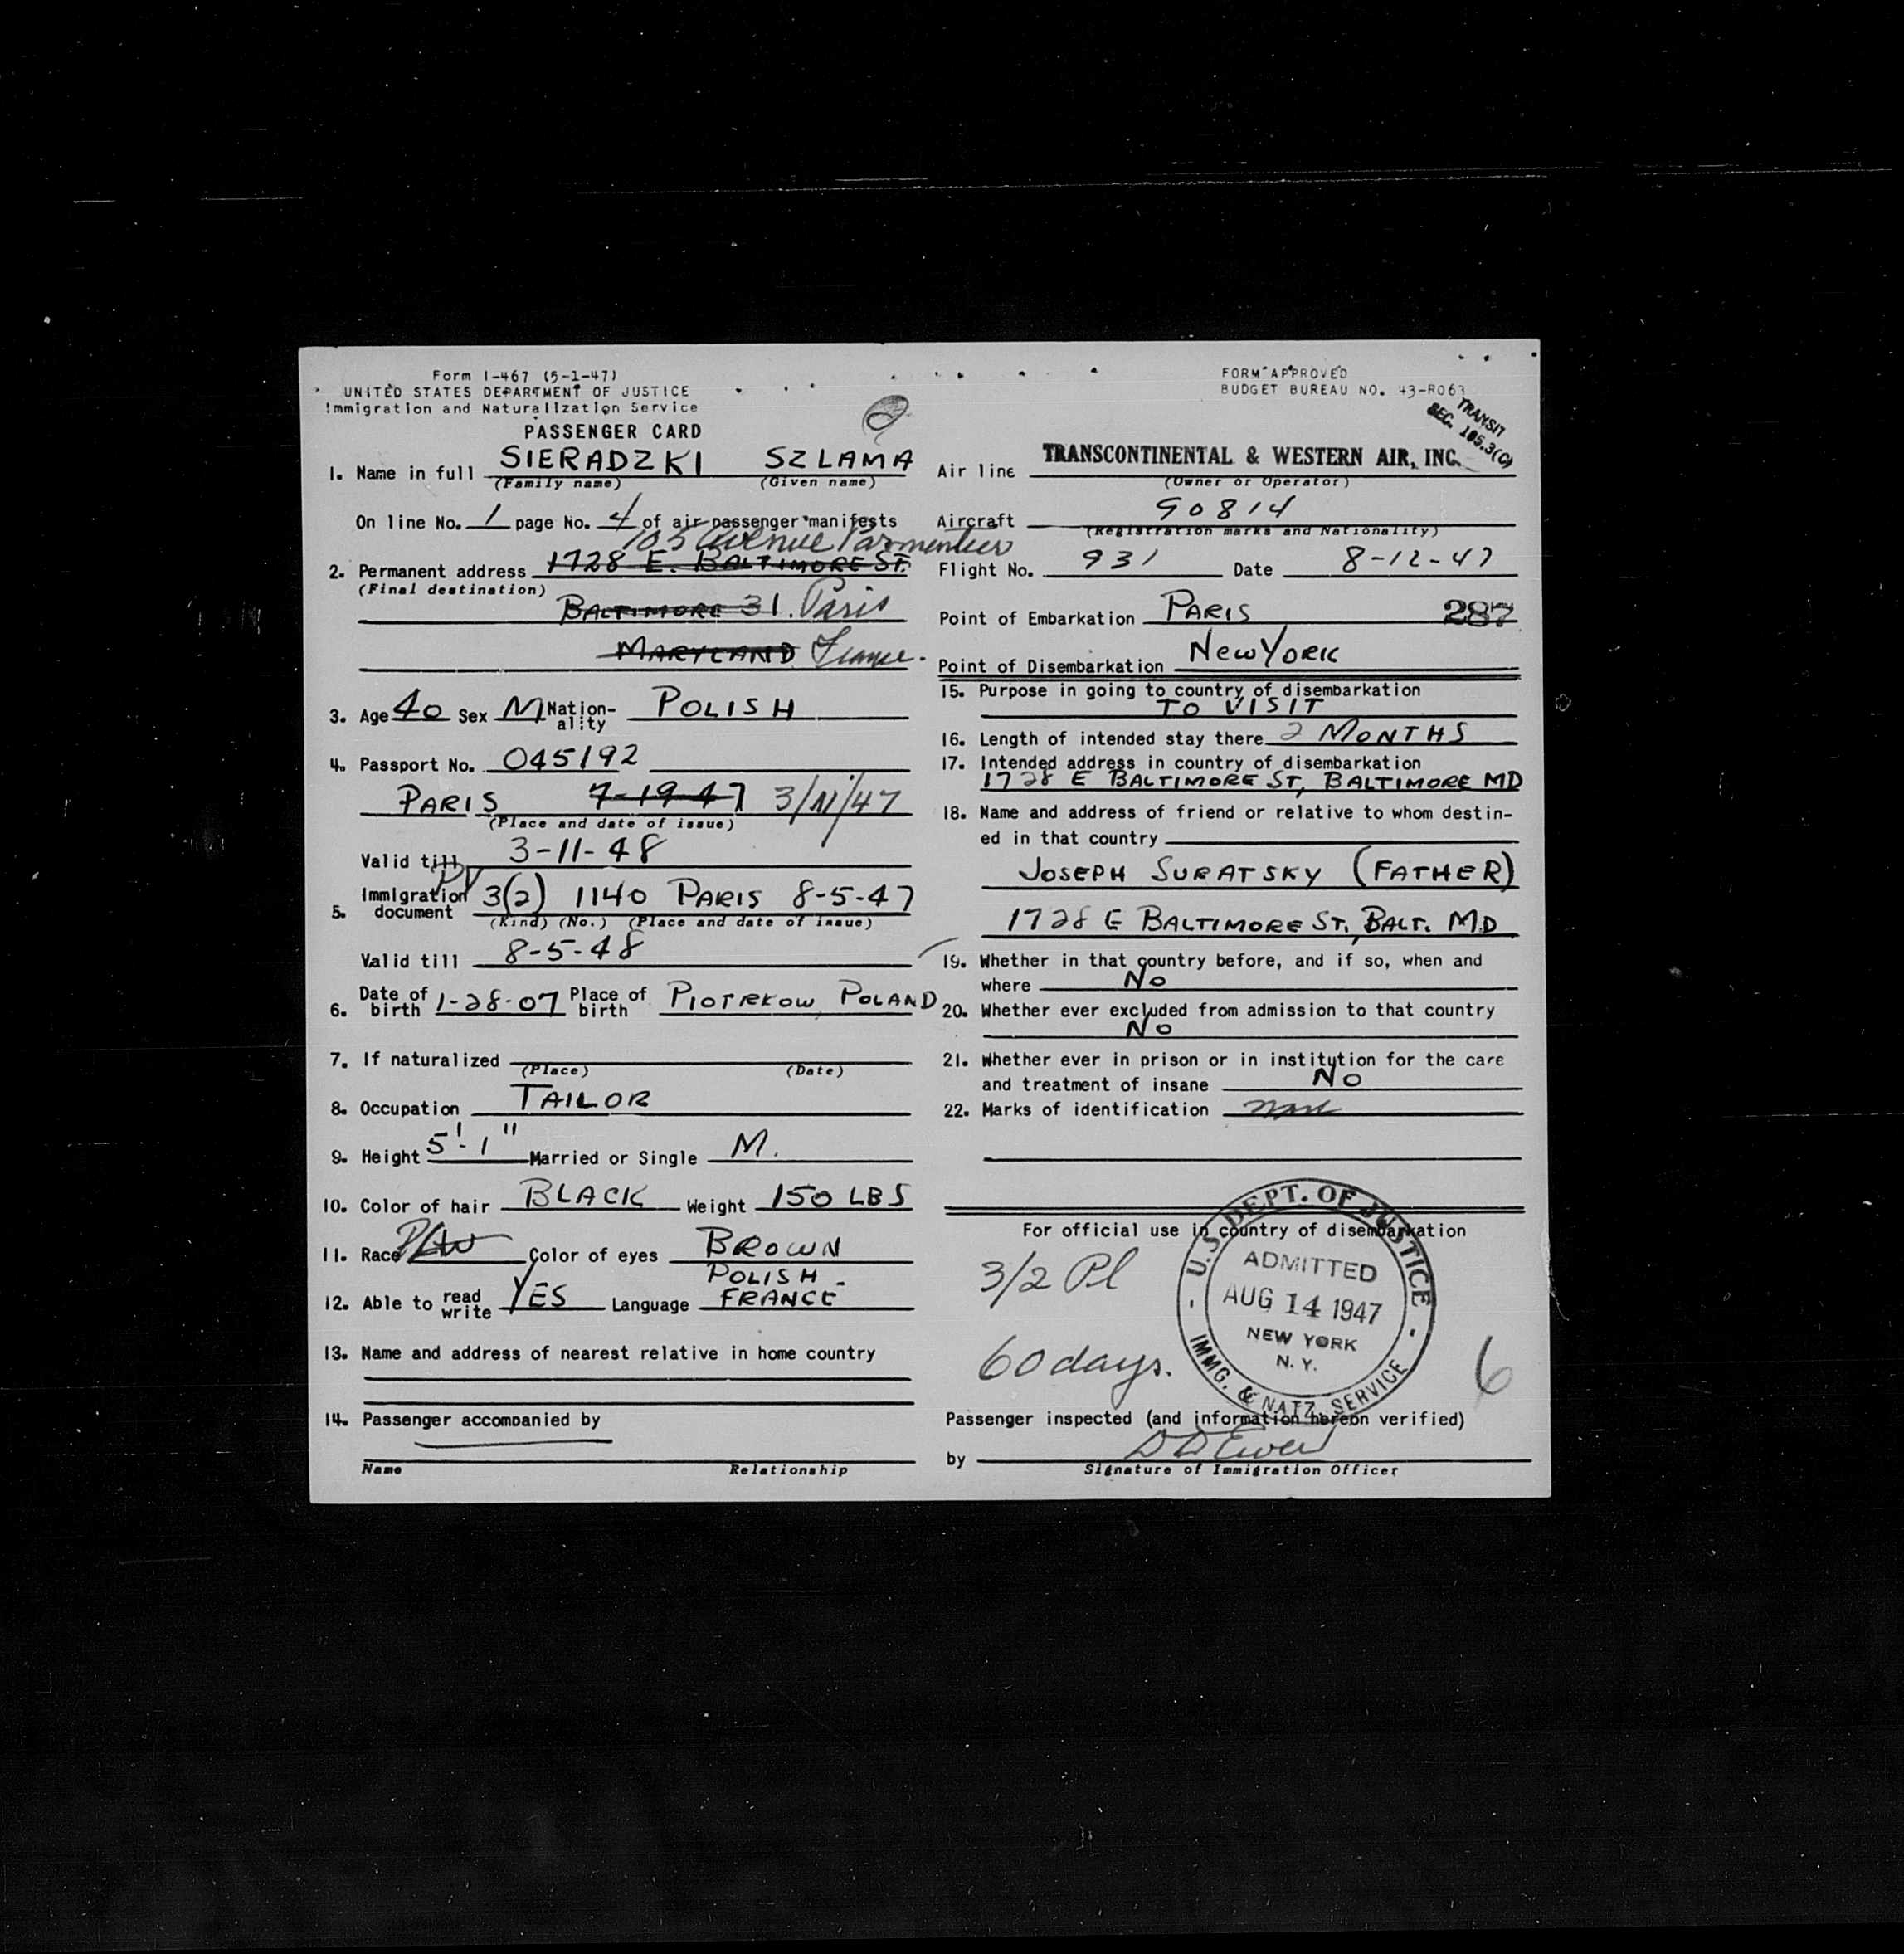 Form I-467 (5-1-47)
UNITED STATES DEPARTMENT OF JUSTICE
Immigration and Naturalization Service
PASSENGER CARD
1. Name in full SIERADZKI SZLAMA
(Family name) (Given name)
On line No. 1 page No. 4 of air passenger manifests
105 Avenue Parmentier
2. Permanent address 1728 E. BALTIMORE ST.
(Final destination)
BALTIMORE 31. Paris
MARYLAND France.
3. Age 40 Sex M Nationality POLISH
4. Passport No. 045192
PARIS 7-19-47 3/11/47
(Place and date of issue)
Valid till 3-11-48
PV
5. Immigration document 3(2) 1140 PARIS 8-5-47
(Kind) (No.) (Place and date of issue)
Valid till 8-5-48
6. Date of birth 1-28-07 Place of birth PIOTRKOW, POLAND
7. If naturalized
(Place) (Date)
8. Occupation TAILOR
9. Height 5'-1" Married or Single M.
10. Color of hair BLACK Weight 150 LBS
11. Race Color of eyes BROWN
POLISH -
12. Able to read write YES Language FRANCE
13. Name and address of nearest relative in home country
14. Passenger accompanied by
Name Relationship
FORM APPROVED
BUDGET BUREAU NO. 43-R063
TRANSIT
SEC. 105.3(C)
Air line TRANSCONTINENTAL & WESTERN AIR, INC.
(Owner or Operator)
Aircraft 90814
(Registration marks and Nationality)
Flight No. 931 Date 8-12-47
Point of Embarkation PARIS 287
Point of Disembarkation NEW YORK
15. Purpose in going to country of disembarkation
TO VISIT
16. Length of intended stay there 2 MONTHS
17. Intended address in country of disembarkation
1728 E BALTIMORE ST, BALTIMORE MD
18. Name and address of friend or relative to whom destin-
ed in that country
JOSEPH SURATSKY (FATHER)
1728 E BALTIMORE ST., BALT. MD
19. Whether in that country before, and if so, when and
where NO
20. Whether ever excluded from admission to that country
NO
21. Whether ever in prison or in institution for the care
and treatment of insane NO
22. Marks of identification none
For official use in country of disembarkation
3/2 Pl
60 days.
U.S. DEPT. OF JUSTICE
ADMITTED
AUG 14 1947
NEW YORK
N. Y.
IMMG. & NATZ. SERVICE
6
Passenger inspected (and information hereon verified)
by
Signature of Immigration Officer